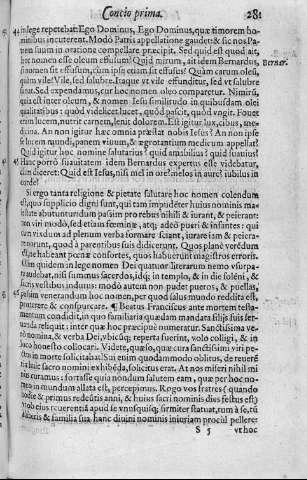 Concio prima. 281
in lege repetebat: Ego Dominus, Ego Dominus, quæ timorem ho-
minibus incuterent. Modò Patris appellatione gaudet: & sic nos Pa-
trem suum in oratione compellare præcipit. Sed quid est quod ait,
hoc nomen esse oleum effusum? Quid mirum, ait idem Bernardus,
Bernar.
si nomen sit effusum, cùm ipse etiam sit effusus? Quàm carum oleũ,
quàm vile! Vile, sed salubre. Itaque vt vile effunditur, sed vt salubre
Sed expendamus, cur hoc nomen oleo comparetur. Nimirũ,
quia est inter oleum, & nomen Iesu similitudo in quibusdam olei
qualitatibus: quòd videlicet lucet, quòd pascit, quòd vngit. Fouet
ignem, nutrit carnem, lenit dolorem. Est igitur lux, cibus, me-
dicina. An non igitur hæc omnia præstat nobis Iesus? An non ipse
lucem mundi, panem viuum, & ægrotantium medicum appellat?
Quid igitur hoc nomine salutarius? quid amabilius? quid iucundius?
Hanc porrò suauitatem idem Bernardus expertus esse videbatur,
cùm diceret: Quid est Iesus, nisi mel in ore? melos in aure? iubilus in
corde?
Si ergo tanta religione & pietate salutare hoc nomen colendum
est, quo supplicio digni sunt, qui tam impudẽter huius nominis ma-
iestate abutuntur dum passim pro rebus nihili & iurant, & peierant:
non viri modò, sed etiam fœminæ, atq; adeò pueri & infantes: qui
cùm vixdum ad plenum verba formare sciant, iurare iam & peiera-
re norunt, quòd à parentibus suis didicerunt. Quos planè verèdum
est ne habeant pœnæ consortes, quos habuerunt magistros erroris.
Cùm quidem in lege nomen Dei quatuor literarum nemo vsurpa-
re audebat, nisi summus sacerdos, idq; in templo, & in die solẽni, &
sacris vestibus indutus: modò autem non pudet pueros, & puellas,
passim venerandum hoc nomen, per quod salus mundo reddita est,
proterere, & conspurcare. ¶ Beatus Franciscus ante mortem testa-
mentum condidit, in quo familiaria quædam mandata filijs suis ser-
uanda reliquit: inter quæ hoc præcipuè numeratur. Sanctissima ve-
rò nomina, & verba Dei, vbicũq; reperta fuerint, volo colligi, & in
loco honesto collocari. Videte, quæso, quæ cura sanctissimi viri pe-
ctus in morte solicitabat. Sui enim quodammodo oblitus, de reuerẽ-
tia huic sacro nomini exhibẽda, solicitus erat. At nos miseri nihil mi-
nùs curamus: fortasse quia nondum salutem eam, quæ per hoc no-
men in mundum allata est, percepimus. Rogo vos fratres (quando
hodie & primus redẽtionis anni, & huius sacri nominis dies festus est)
vt ob eius reuerentiã apud se vnusquisq; firmiter statuat, tum à se, tũ
à liberis & familia sua hanc diuini nominis iniuriam procul pellere:
S 5 vt hoc